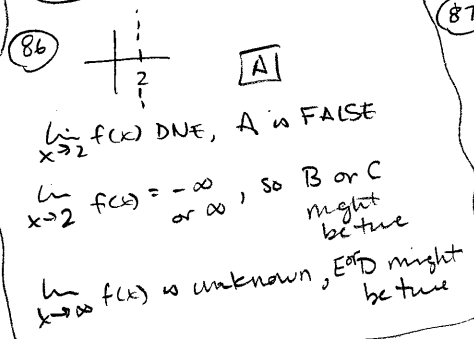 86
87
2
A
lim x→2 f(x) DNE, A is FALSE
lim x→2 f(x) = -∞ or ∞, so B or C might be true
lim x→∞ f(x) is unknown, E or D might be true